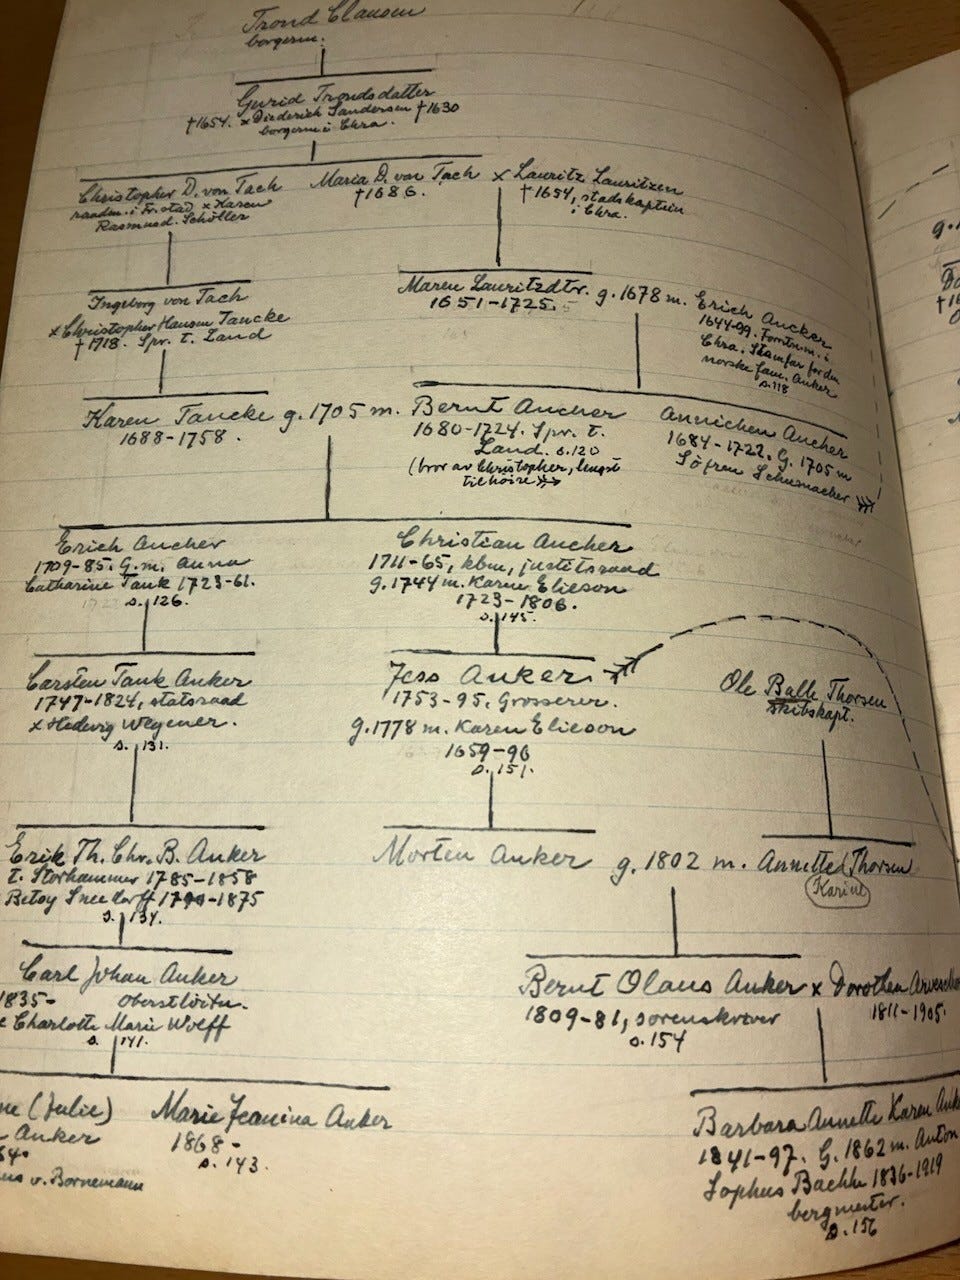 Trond Clausen
borgerm.
Gurid Trondsdatter
†1654. x Diederich Sandersen †1630
borgerm i Chra.
Christopher D. von Tach
raadm. i Fr.stad x Karen
Rasmusd. Schöller
Maria D. von Tach x Lauritz Lauritzen
†1686.
†1654, stadskaptein
i Chra.
Ingeborg von Tach
x Christopher Hansen Tancke
†1718. Spr. t. Land
Maren Lauritzdtr. g. 1678 m. Erich Ancker
1651-1725.
1644-99. Forretn.m. i
Chra. Stamfar for den
norske fam. Anker
s. 118
Karen Tancke g. 1705 m. Bernt Ancher
1688-1758.
1680-1724. Spr. t.
Land. s. 120
(bror av Christopher, lengst
til høire
Annichen Ancher
1684-1722. G. 1705 m
Söfren Schumacher
Erich Ancher
1709-85. G. m. Anna
Catharine Tank 1723-61.
s. 126.
Christian Ancher
1711-65, kbm, justitsraad
g. 1744 m. Karen Elieson
1723-1806.
s. 145.
Carsten Tank Anker
1747-1824, statsraad
x Hedevig Wegener.
s. 131.
Jess Anker
1753-95, Grosserer.
g. 1778 m. Karen Elieson
1659-96
s. 151.
Ole Balle Thorsen
skibskapt.
Erik Th. Chr. B. Anker
t. Storhammer 1785-1858
Betsy Sneedorff -1875
s. 134.
Morten Anker g. 1802 m. Annette Thorsen
Karine
Carl Johan Anker
1835- oberstløitn.
x Charlotte Marie Wolff
s. 141.
Bernt Olaus Anker x Dorothea
1809-81, sorenskriver
s. 154
1811-1905.
(Julie)
Anker
v. Bornemann
Marie Jeanina Anker
1868-
s. 143.
Barbara Annette Karen
1841-97. G. 1862 m. Anton
Sophus Bachke 1836-1919
bergmester.
s. 156